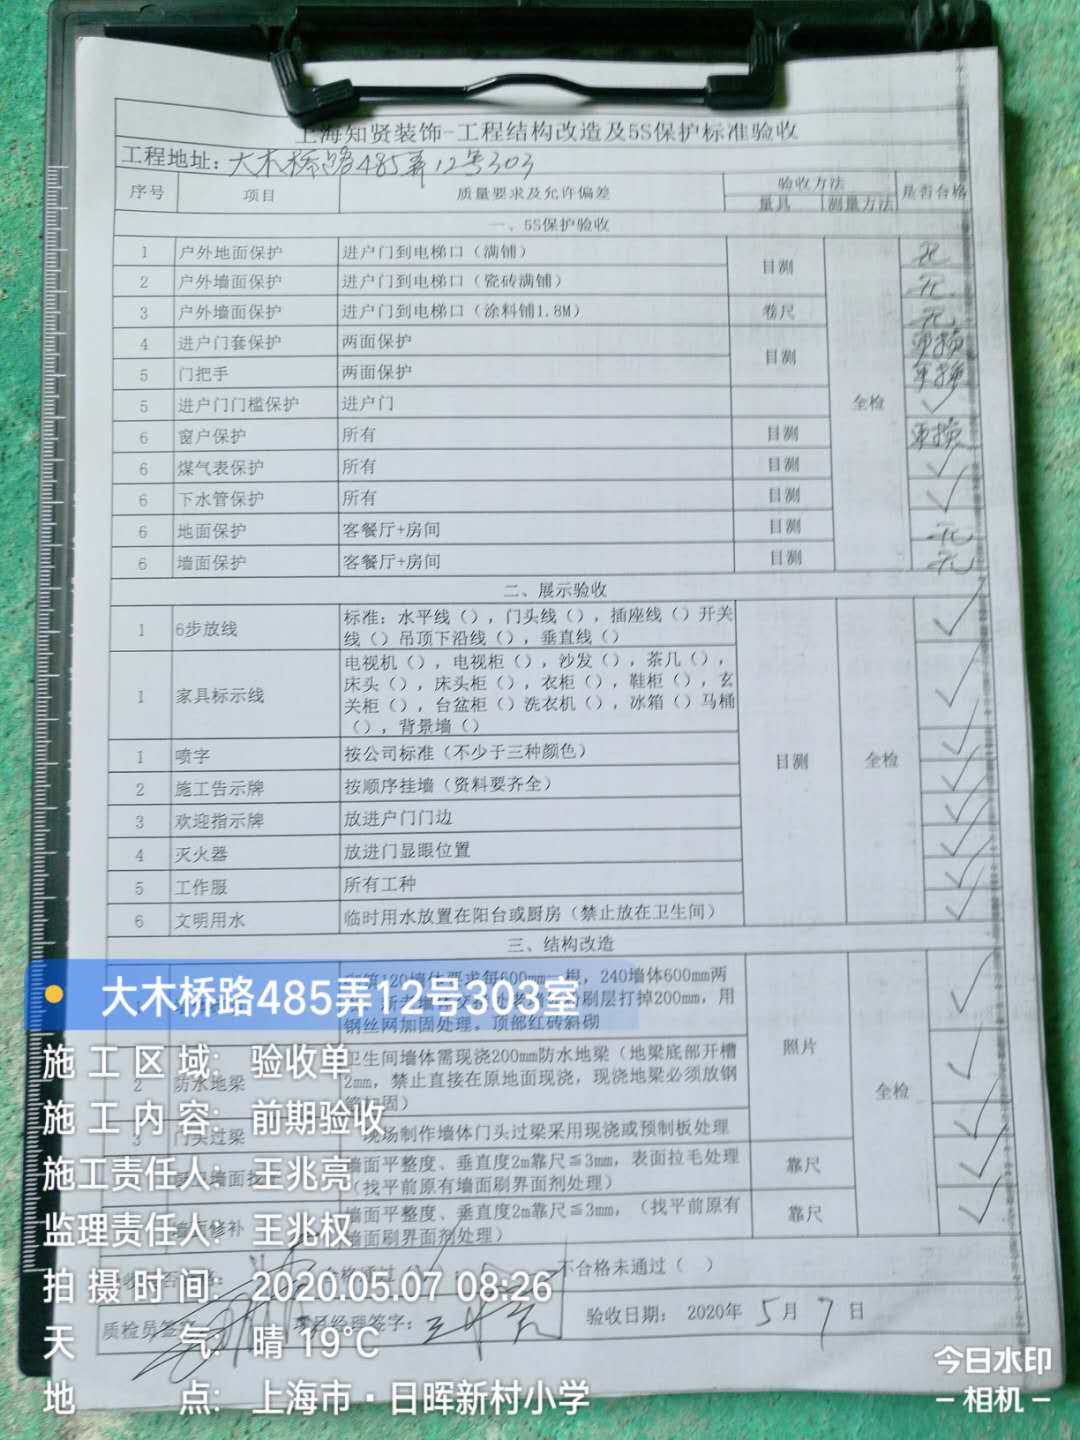 上海知贤装饰-工程结构改造及5S保护标准验收
工程地址：大木桥路485弄12号303
序号 项目 质量要求及允许偏差 验收方法 是否合格
量具 测量方法
一、5S保护验收
1 户外地面保护 进户门到电梯口（满铺） 目测 无
2 户外墙面保护 进户门到电梯口（瓷砖满铺） 无
3 户外墙面保护 进户门到电梯口（涂料铺1.8M） 卷尺 无
4 进户门套保护 两面保护 目测 更换
5 门把手 两面保护 更换
5 进户门门槛保护 进户门 全检 ✓
6 窗户保护 所有 目测 更换
6 煤气表保护 所有 目测 ✓
6 下水管保护 所有 目测 ✓
6 地面保护 客餐厅+房间 目测 无
6 墙面保护 客餐厅+房间 目测 无
二、展示验收
1 6步放线 标准：水平线（），门头线（），插座线（）开关
线（）吊顶下沿线（），垂直线（） ✓
1 家具标示线 电视机（），电视柜（），沙发（），茶几（），
床头（），床头柜（），衣柜（），鞋柜（），玄
关柜（），台盆柜（）洗衣机（），冰箱（）马桶
（），背景墙（） ✓
1 喷字 按公司标准（不少于三种颜色） 目测 全检 ✓
2 施工告示牌 按顺序挂墙（资料要齐全） ✓
3 欢迎指示牌 放进户门门边 ✓
4 灭火器 放进门显眼位置 ✓
5 工作服 所有工种 ✓
6 文明用水 临时用水放置在阳台或厨房（禁止放在卫生间） ✓
三、结构改造
120墙体要求每600mm一根，240墙体600mm两
刷层打掉200mm，用
钢丝网加固处理。顶部红砖斜砌 ✓
照片
2 防水地梁 卫生间墙体需现浇200mm防水地梁（地梁底部开槽
2mm，禁止直接在原地面现浇，现浇地梁必须放钢
加固） 全检 ✓
3 门头过梁 现场制作墙体门头过梁采用现浇或预制板处理 ✓
墙面 墙面平整度、垂直度2m靠尺≦3mm，表面拉毛处理
（找平前原有墙面刷界面剂处理） 靠尺 ✓
修补 墙面平整度、垂直度2m靠尺≦3mm，（找平前原有
墙面刷界面剂处理） 靠尺 ✓
合格通过 不合格未通过（ ）
质检员签字： 项目经理签字： 验收日期： 2020年 5月 7日
大木桥路485弄12号303室
施工区域：验收单
施工内容：前期验收
施工责任人：王兆亮
监理责任人：王兆权
拍摄时间：2020.05.07 08:26
天气：晴 19℃
地点：上海市·日晖新村小学
今日水印
-相机-